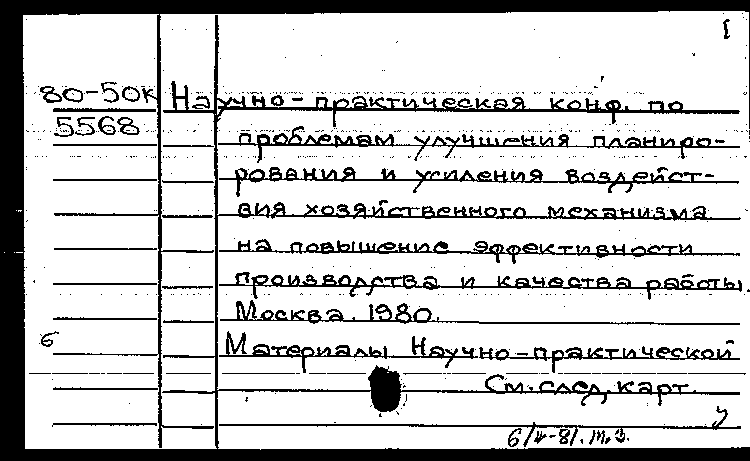 80-50к Научно-практическая конф. по
5568 проблемам улучшения планиро-
рования и усиления воздейст-
вия хозяйственного механизма
на повышение эффективности
производства и качества работы.
Москва. 1980.
б Материалы Научно-практической
См. след. карт.